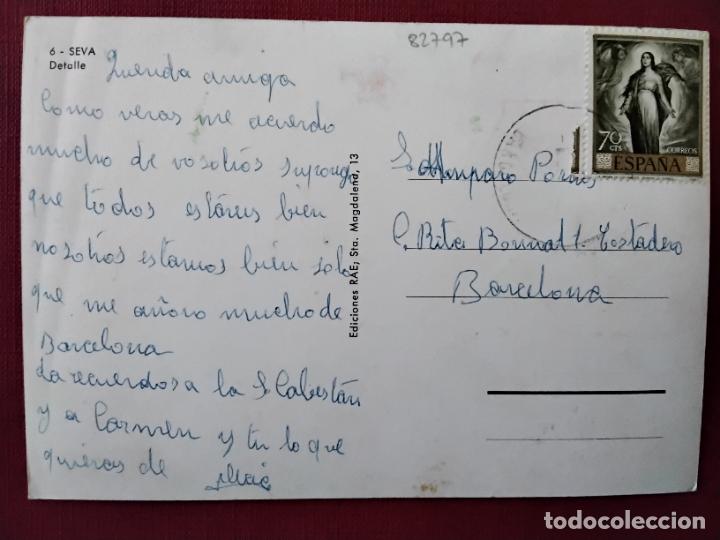 82797
6 - SEVA
Detalle
Querida amiga
Como veras me acuerdo
mucho de vosotros supongo
que todos estareis bien
nosotros estamos bien solo
que me añoro mucho de
Barcelona
Da recuerdos a la S. Cabestán
y a Carmen y tu lo que
quieras de
Ediciones RAE, Sta. Magdalena, 13
70
CTS
CORREOS
ESPAÑA
Amparo
C. Rita Bonnat 1. Tostadero
Barcelona
todocoleccion.net